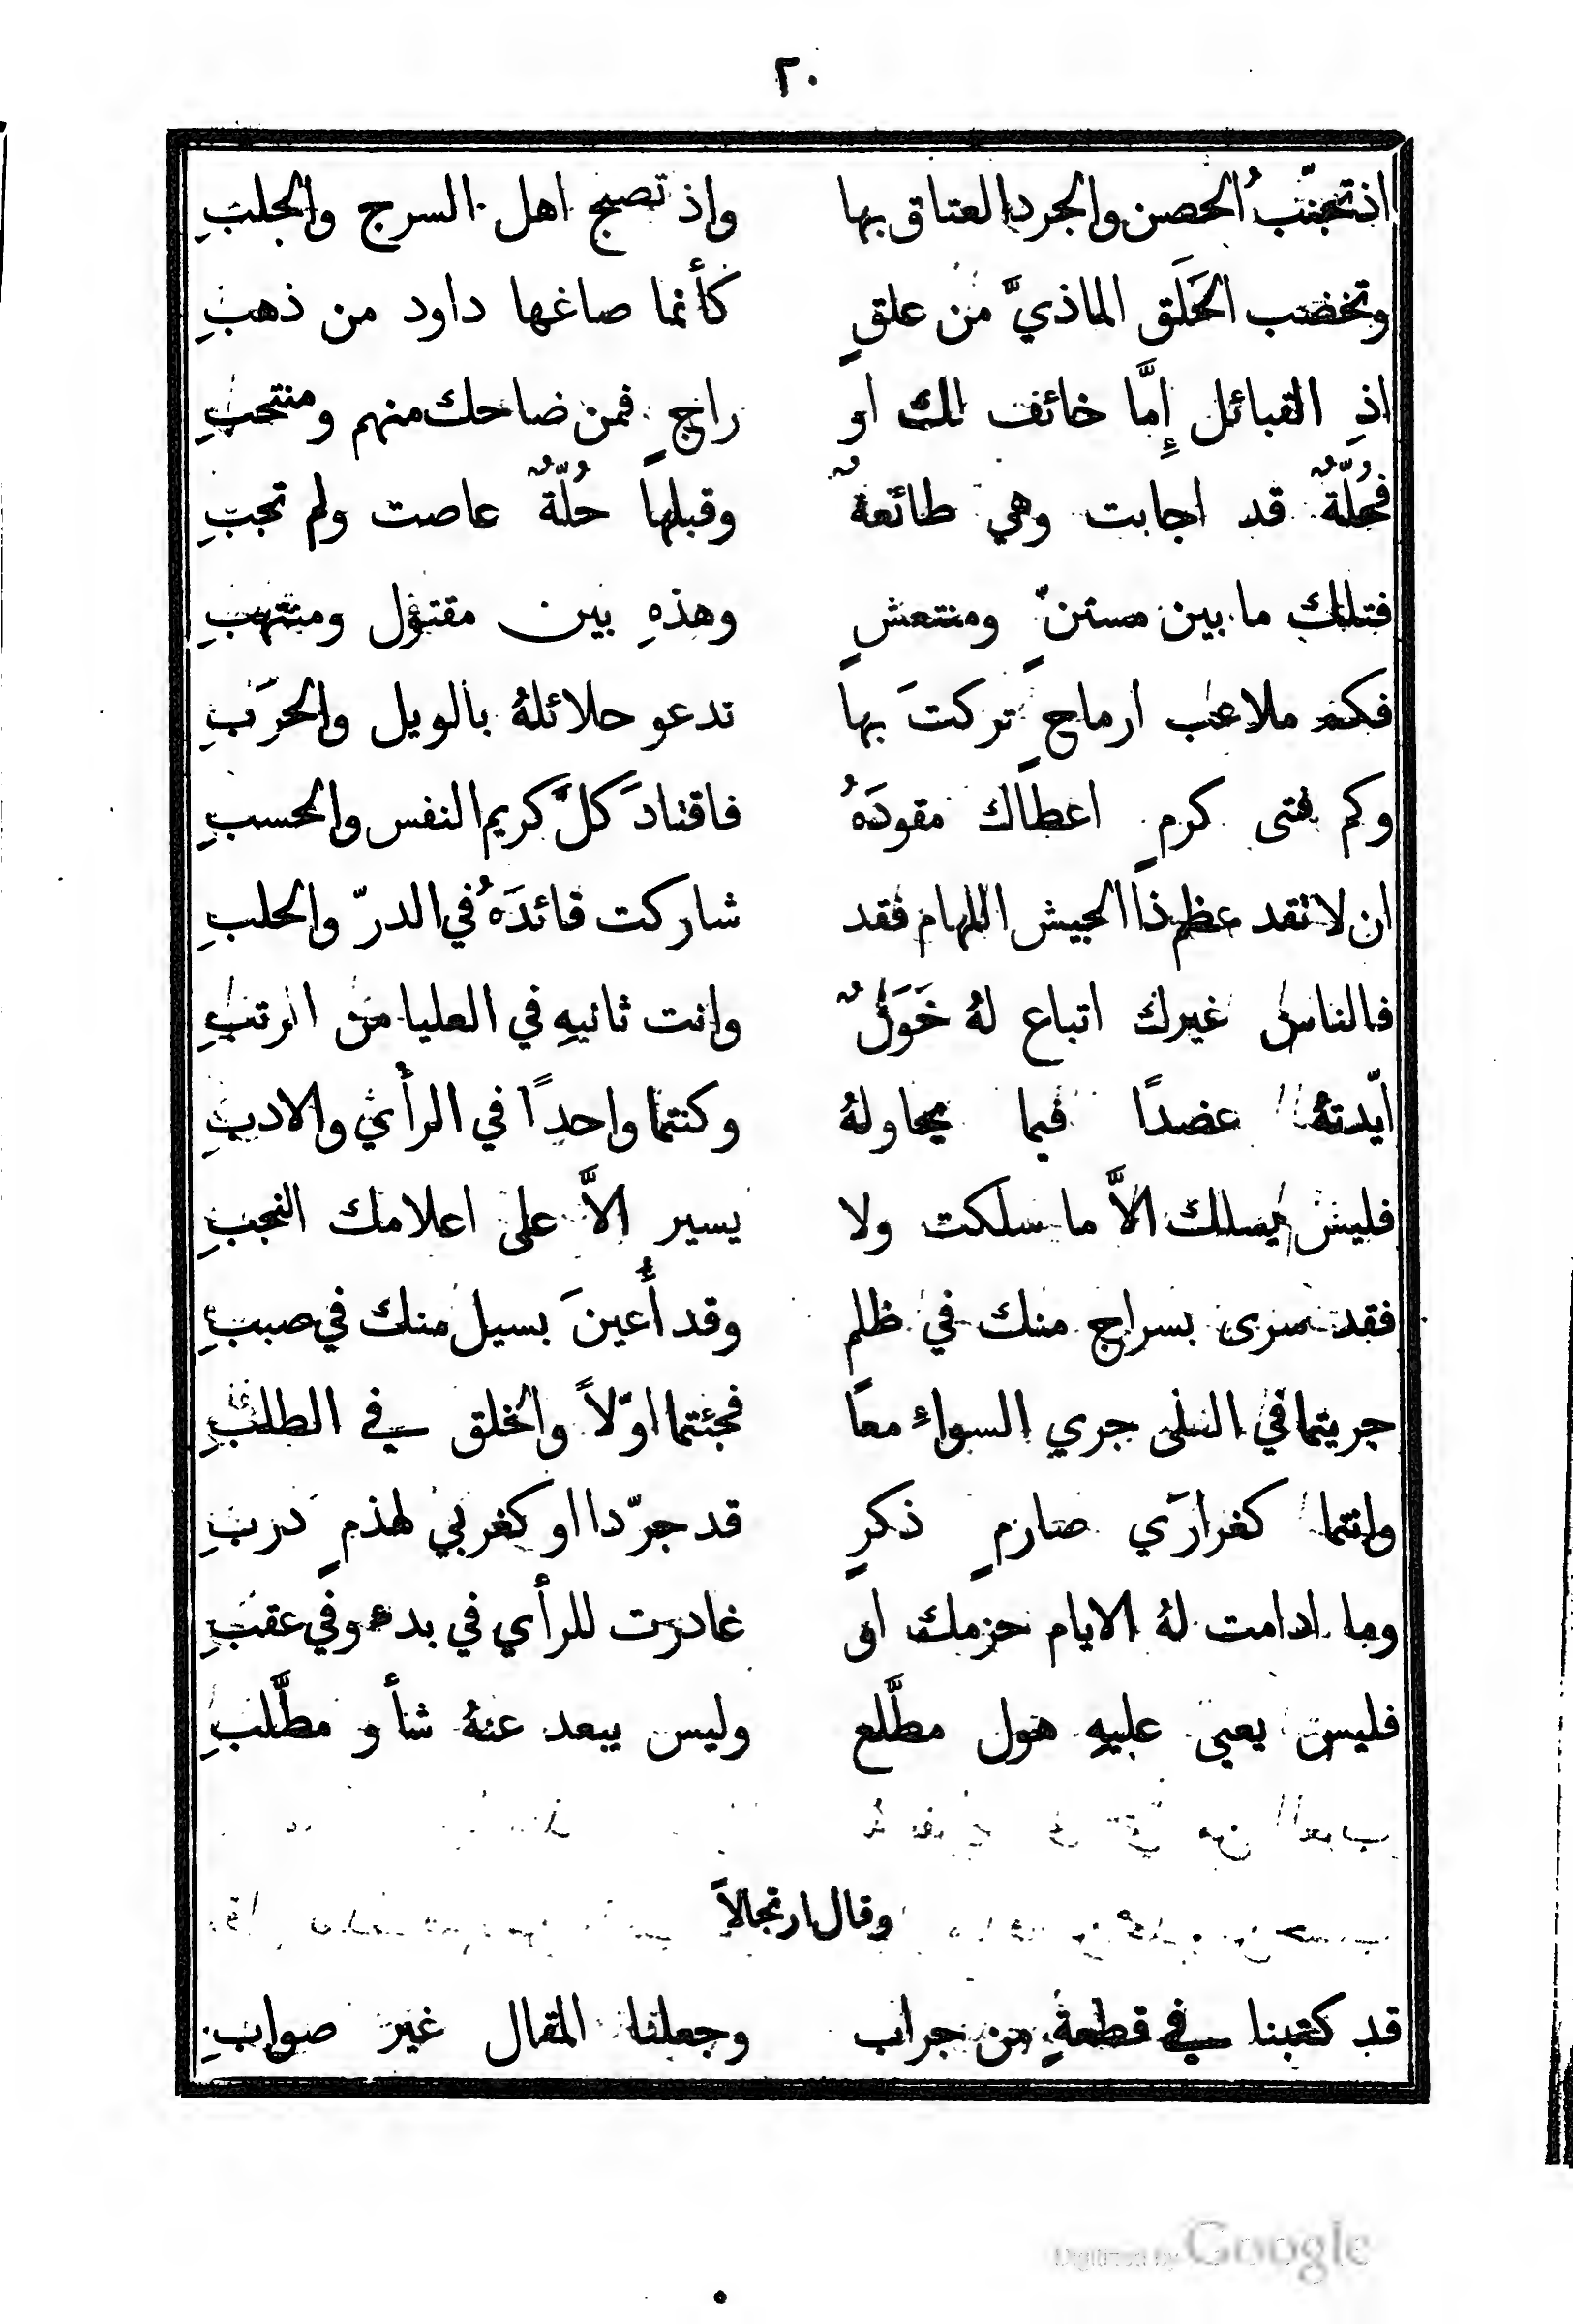 ٢٠
اذ تجنّبُ الحصن والجرد العتاق بها واذ تصبح اهل السرج والجلبِ
وتخضب الحَلَق الماذيَّ من علقٍ كأنما صاغها داود من ذهبِ
اذِ القبائل إِمَّا خائف لك او راجٍ فمن ضاحك منهم ومنتحبِ
فحُلّةٌ قد اجابت وهي طائعةٌ وقبلها حُلّةٌ عاصت ولم تجبِ
فتلك ما بين مستنّ ومنتعشٍ وهذهِ بين مقتول ومنتهبِ
فكم ملاعب ارماحٍ تركتَ بها تدعو حلائلهُ بالويل والحرَبِ
وكم فتى كرمٍ اعطاك مقودَهُ فاقتادَ كلَّ كريم النفس والحسبِ
ان لا تقد عظم ذا الجيش اللهام فقد شاركت قائدَهُ في الدرّ والحلبِ
فالناس غيرك اتباع لهُ خَوَلٌ وانت ثانيهِ في العليا من الرتبِ
ايّدتهُ عضدًا فيما يحاولهُ وكنتما واحدًا في الرأْي والادبِ
فليس يسلك الاَّ ما سلكت ولا يسير الاَّ على اعلامك النجبِ
فقد سرى بسراج منك في ظلمٍ وقد أُعينَ بسيل منك في صببِ
جريتما في العلى جري السواءِ معًا فجئتما اوّلاً والخلق في الطلبِ
وانتما كغرارَي صارمٍ ذكرٍ قد جرّدا او كغربي لهذمٍ دربِ
وما ادامت لهُ الايام حزمك او غادرت للرأْي في بدءٍ وفي عقبِ
فليس يعيي عليهِ هول مطَّلع وليس يبعد عنهُ شأْو مطَّلبِ
وقال ارتجالاً
قد كتبنا في قطعةٍ من جراب وجعلنا المقال غير صوابِ
Digitized by Google